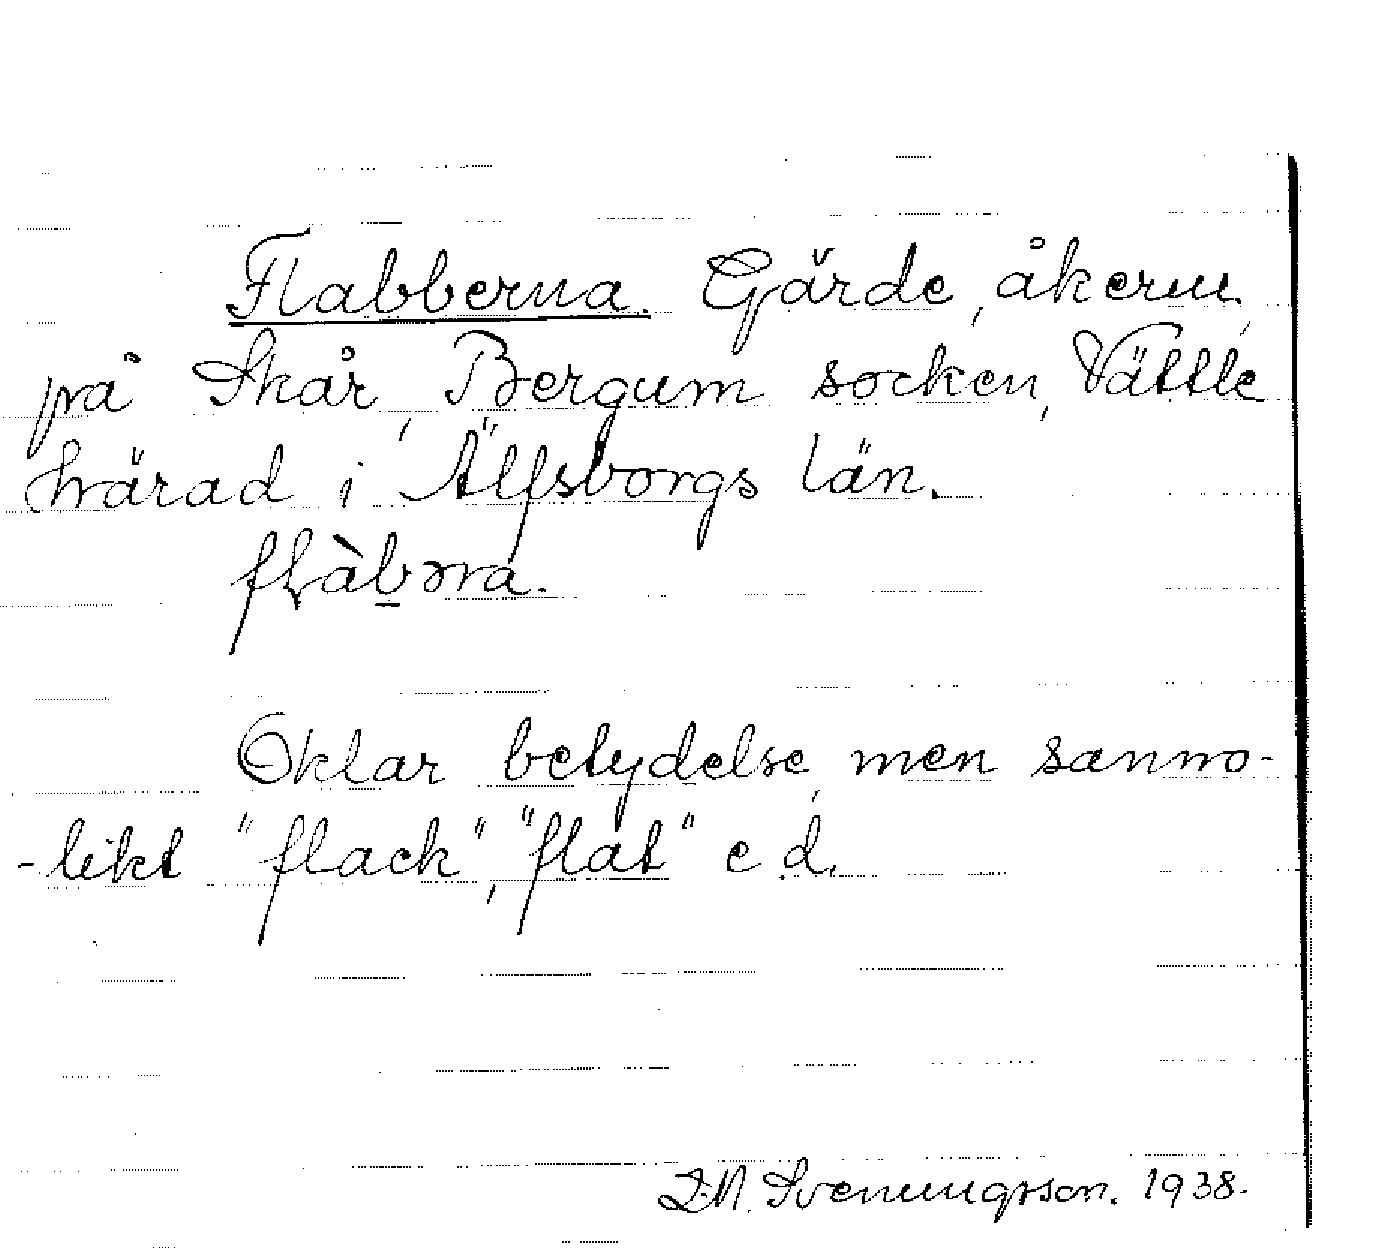 Flabberna. Gärde, åkerm,
på Skår, Bergum socken, Vättle
härad i Älfsborgs län.
flàb̲əra.
Oklar betydelse, men sanno-
-likt "flack", "flat" e d.
D.N. Svenungsson. 1938.